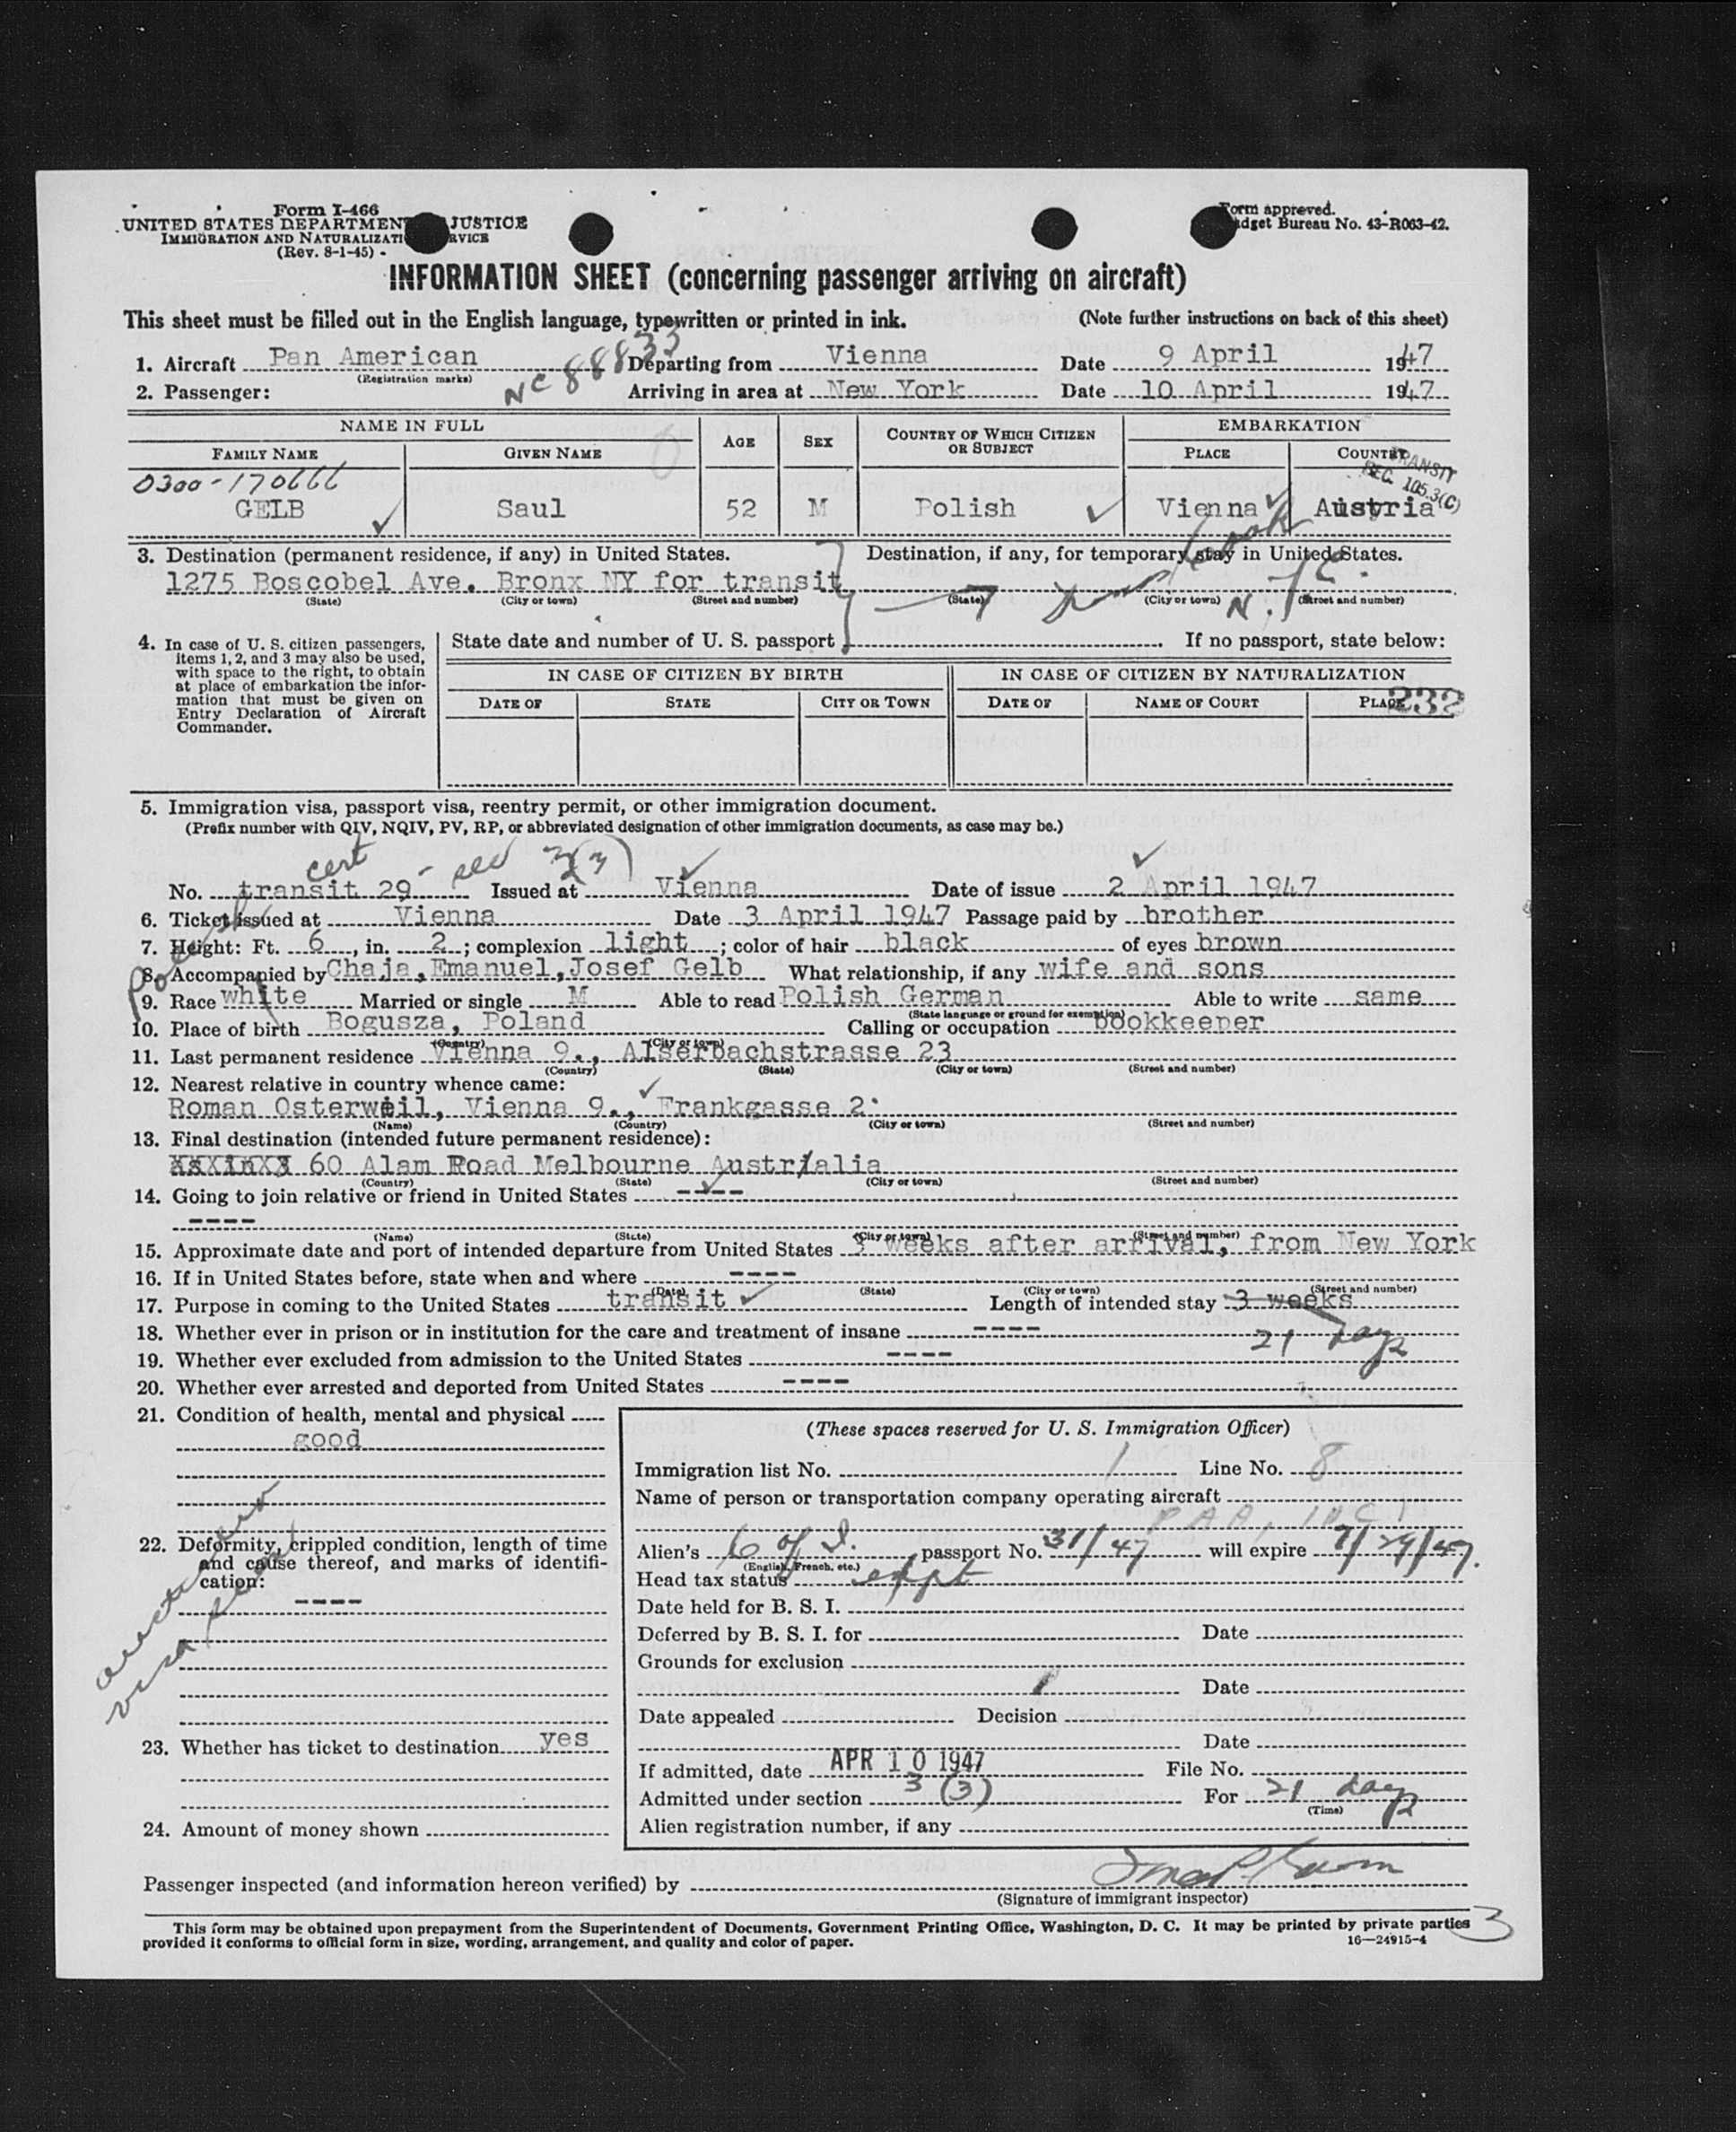 Form I-466
UNITED STATES DEPARTMENT JUSTICE
IMMIGRATION AND NATURALIZATI RVICE
(Rev. 8-1-45)
Form approved.
dget Bureau No. 43-R063-42.
INFORMATION SHEET (concerning passenger arriving on aircraft)
This sheet must be filled out in the English language, typewritten or printed in ink. (Note further instructions on back of this sheet)
1. Aircraft Pan American NC 88833 Departing from Vienna Date 9 April 1947
(Registration marks)
2. Passenger: Arriving in area at New York Date 10 April 1947
NAME IN FULL AGE SEX COUNTRY OF WHICH CITIZEN OR SUBJECT EMBARKATION
FAMILY NAME GIVEN NAME PLACE COUNTRY
TRANSIT
SEC. 105.3(C)
0300-170666
GELB Saul 52 M Polish Vienna Austria
3. Destination (permanent residence, if any) in United States. Destination, if any, for temporary stay in United States.
1275 Boscobel Ave. Bronx NY for transit
(State) (City or town) (Street and number) (State) (City or town) (Street and number)
4. In case of U. S. citizen passengers, items 1, 2, and 3 may also be used, with space to the right, to obtain at place of embarkation the information that must be given on Entry Declaration of Aircraft Commander.
State date and number of U. S. passport If no passport, state below:
IN CASE OF CITIZEN BY BIRTH IN CASE OF CITIZEN BY NATURALIZATION
DATE OF STATE CITY OR TOWN DATE OF NAME OF COURT PLACE
232
5. Immigration visa, passport visa, reentry permit, or other immigration document.
(Prefix number with QIV, NQIV, PV, RP, or abbreviated designation of other immigration documents, as case may be.)
cert - sec 3(3)
No. transit 29 Issued at Vienna Date of issue 2 April 1947
6. Ticket issued at Vienna Date 3 April 1947 Passage paid by brother
7. Height: Ft. 6, in. 2; complexion light; color of hair black of eyes brown
8. Accompanied by Chaja, Emanuel, Josef Gelb What relationship, if any wife and sons
Polish
9. Race white Married or single M Able to read Polish German Able to write same
(State language or ground for exemption)
10. Place of birth Bogusza, Poland Calling or occupation bookkeeper
(Country) (City or town)
11. Last permanent residence Vienna 9., Alserbachstrasse 23
(Country) (State) (City or town) (Street and number)
12. Nearest relative in country whence came:
Roman Osterweil, Vienna 9., Frankgasse 2
(Name) (Country) (City or town) (Street and number)
13. Final destination (intended future permanent residence):
60 Alam Road Melbourne Australia
(Country) (State) (City or town) (Street and number)
14. Going to join relative or friend in United States ----
----
(Name) (State) (City or town) (Street and number)
15. Approximate date and port of intended departure from United States 3 weeks after arrival, from New York
16. If in United States before, state when and where ----
(Date) (State) (City or town) (Street and number)
17. Purpose in coming to the United States transit Length of intended stay 3 weeks
21 days
18. Whether ever in prison or in institution for the care and treatment of insane ----
19. Whether ever excluded from admission to the United States ----
20. Whether ever arrested and deported from United States ----
21. Condition of health, mental and physical
good
22. Deformity, crippled condition, length of time and cause thereof, and marks of identification:
----
Australian
visa seen
23. Whether has ticket to destination yes
24. Amount of money shown
(These spaces reserved for U. S. Immigration Officer)
Immigration list No. 1 Line No. 8
Name of person or transportation company operating aircraft
PAA, INC
Alien's C of I. passport No. 31/47 will expire 7/29/47.
(English, French, etc.)
Head tax status expt
Date held for B. S. I.
Deferred by B. S. I. for Date
Grounds for exclusion
Date
Date appealed Decision
Date
If admitted, date APR 10 1947 File No.
Admitted under section 3 (3) For 21 days
(Time)
Alien registration number, if any
Passenger inspected (and information hereon verified) by
(Signature of immigrant inspector)
This form may be obtained upon prepayment from the Superintendent of Documents, Government Printing Office, Washington, D. C. It may be printed by private parties
provided it conforms to official form in size, wording, arrangement, and quality and color of paper. 16—24915-4
3